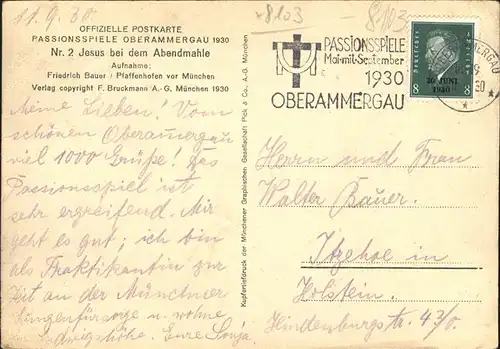 11.9.30
OFFIZIELLE POSTKARTE
PASSIONSSPIELE OBERAMMERGAU 1930
Nr. 2 Jesus bei dem Abendmahle
Aufnahme:
Friedrich Bauer / Pfaffenhofen vor München
Verlag copyright F. Bruckmann A.-G. München 1930
Meine Lieben! Vom
schönen Oberammergau
viel 1000 Grüße! Das
Passionsspiel ist
sehr ergreifend. Mir
geht es gut; ich bin
als Praktikantin zur
Zeit an der Münchner
Lungenfürsorge u. wohne
in Ludwigshöhe. Eure Sonja.
Kupfertiefdruck der Münchener Graphischen Gesellschaft Pick & Co. A.-G. München
8103
- 8103
PASSIONSSPIELE
Mai-mit-September
1930
OBERAMMERGAU
DEUTSCHES REICH
8 8
30. JUNI
1930
OBERAMMERGAU
Herrn und Frau
Walter Bauer.
Itzehoe in
Holstein.
Hindenburgstr. 42/0.